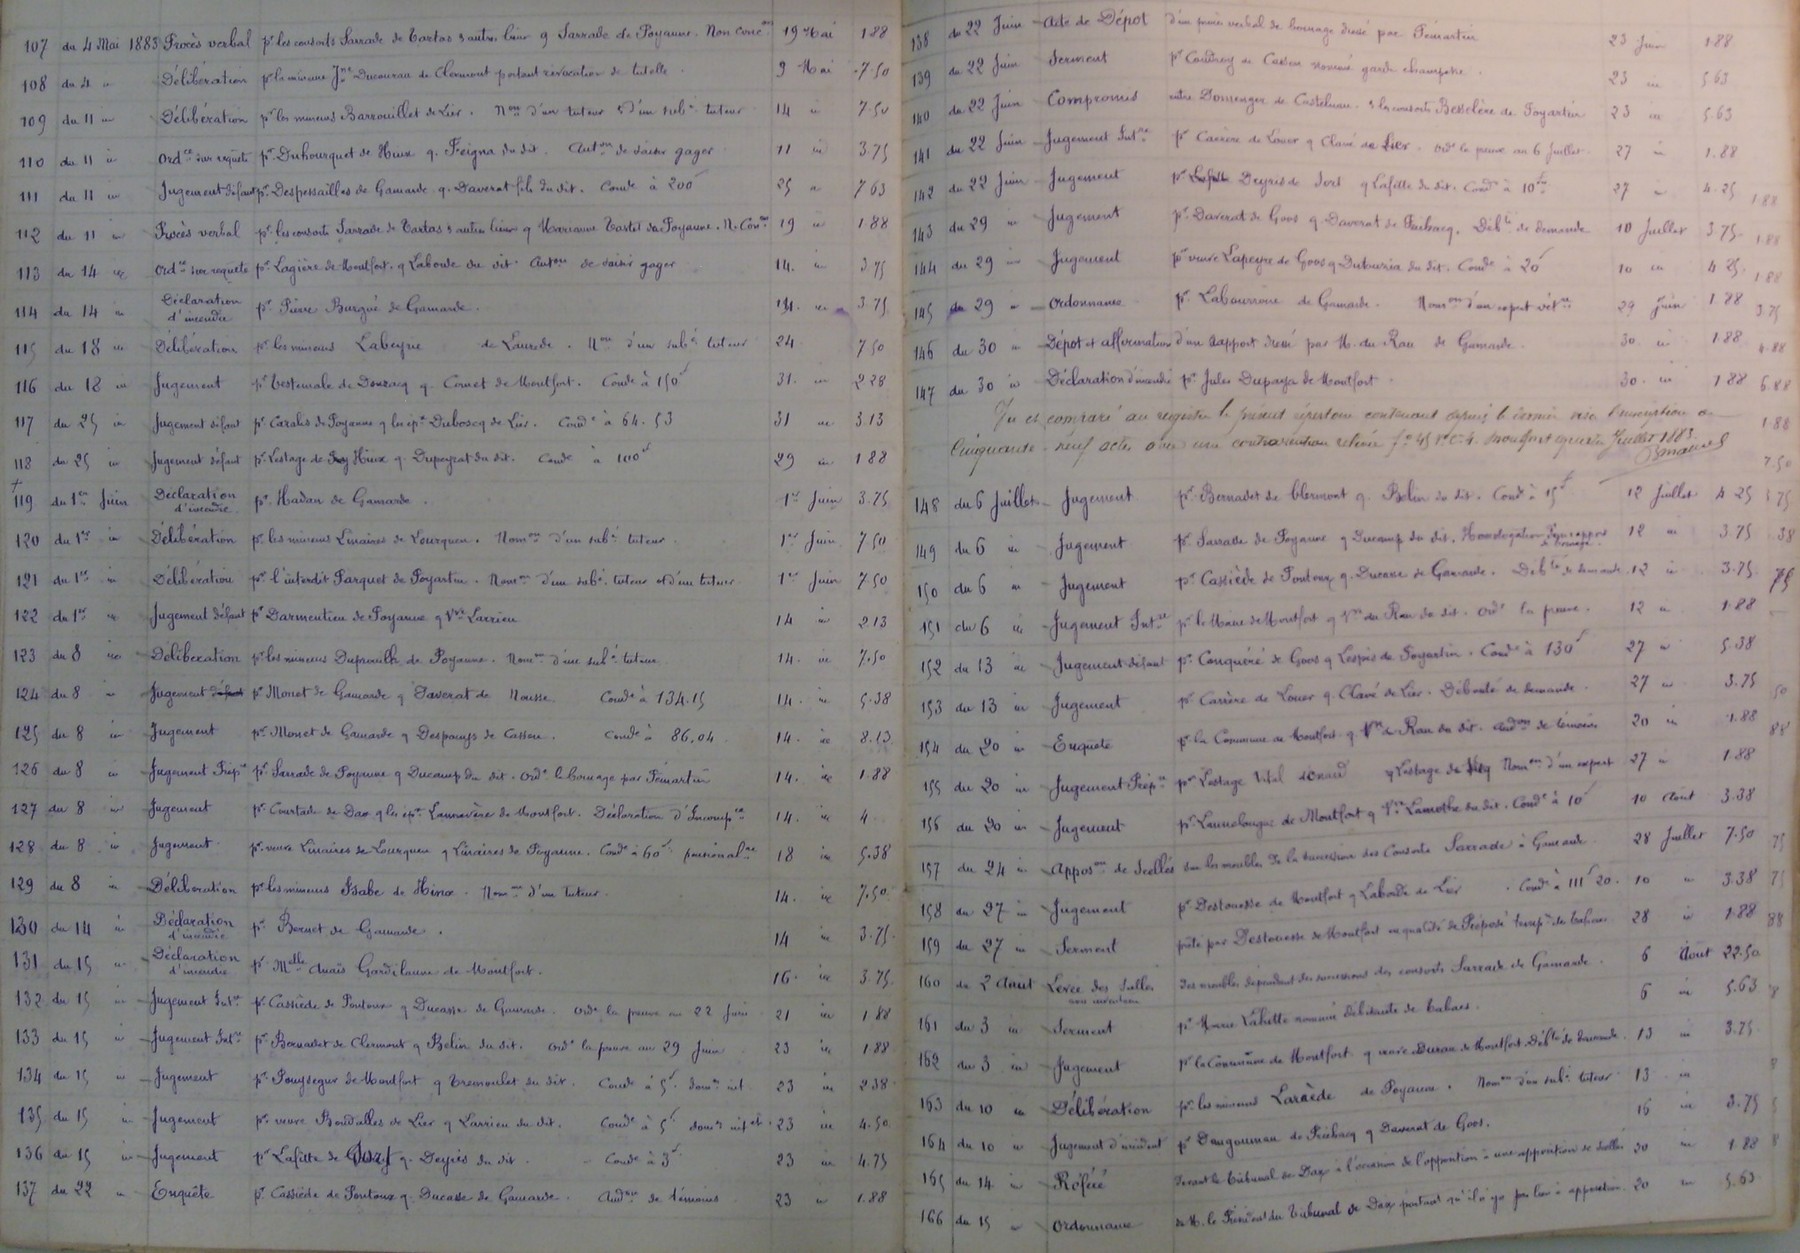 107 du 4 Mai 1883 Procès verbal pr les consorts Sarrade de Tartas & autres lieux q Sarrade de Poyanne. Non conc.on 19 Mai 1 88
108 du 4 in Délibération pr la mineure Jne Ducourau de Clermont portant révocation de tutelle. 9 Mai 7.50
109 du 11 in Délibération pr les mineurs Barrouillet de Lier. Nom d'un tuteur & d'un subé tuteur 14 in 7.50
110 du 11 in Ordce sur requête pr Duhourquet de Hinx q. Feigna du dit. Auton de saisir gager 11 in 3.75
111 du 11 in Jugement défaut pr Despessailles de Gamarde q. Daverat fils du dit. Conde à 200f 25 in 7 63
112 du 11 in Procès verbal pr les consorts Sarrade de Tartas & autres lieux q Marianne Tastet de Poyanne. N. Con.on 19 in 1 88
113 du 14 in Ordce sur requête pr Lagière de Montfort. q Laborde du dit. Auton de saisir gager 14. in 3.75
114 du 14 in Déclaration d'incendie pr Pierre Burgué de Gamarde. 14. in 3.75
115 du 18 in Délibération pr les mineurs Labeyrie de Laurède. Nom d'un subé tuteur 24 7 50
116 du 18 in Jugement pr Testemale de Donzacq q. Cornet de Montfort. Conde à 150f 31. in 2 28
117 du 25 in Jugement défaut pr Caralis de Poyanne q les épx Duboscq de Lier. Conde à 64.53 31 in 3.13
118 du 25 in Jugement défaut pr Lestage de Hinx q. Dupeyrat du dit. Conde à 100f 29 in 1 88
119 du 1er Juin Déclaration d'incendie pr Hadan de Gamarde. 1er Juin 3.75
120 du 1er in Délibération pr les mineurs Linaires de Lourquen. Nomon d'un subé tuteur. 1er Juin 7 50
121 du 1er in Délibération pr l'interdit Farquet de Poyartin. Nomon d'un subé tuteur et d'un tuteur 1er Juin 7 50
122 du 1er in Jugement défaut pr Darmentieu de Poyanne q Vve Larrieu 14 in 2 13
123 du 8 in Délibération pr les mineurs Duprouilh de Poyanne. Nomon d'un subé tuteur 14. in 7.50
124 du 8 in Jugement pr Monet de Gamarde q Daverat de Nousse Conde à 134.15 14. in 5.38
125 du 8 in Jugement pr Monet de Gamarde q Despouys de Cassen. Conde à 86,04. 14. in 8.13
126 du 8 in Jugement Prép.re pr Sarrade de Poyanne q Ducamp du dit. Ordt le bornage par Fémartin 14. in 1.88
127 du 8 in Jugement pr Courtade de Dax q les épx Lannavère de Montfort. Déclaration d'Incomp.ce 14. in 4
128 du 8 in Jugement pr veuve Linaires de Lourquen q Linaires de Poyanne. Conde à 60f pension al.re 18 in 5.38
129 du 8 in Délibération pr les mineurs Isabe de Hinx. Nomon d'un tuteur. 14. in 7.50
130 du 14 in Déclaration d'incendie pr Bernet de Gamarde. 14 in 3.75
131 du 15 in Déclaration d'incendie pr Melle Anaïs Gardilanne de Montfort. 16. in 3.75
132 du 15 in Jugement Intre pr Cassiède de Pontonx q Ducasse de Gamarde. Ordt la preuve au 22 Juin 21 in 1 88
133 du 15 in Jugement Intre pr Bernadet de Clermont q Belin du dit. Ordt la preuve au 29 Juin 23 in 1.88
134 du 15 in Jugement pr Pouységur de Montfort q Tremoulet du dit. Conde à 5f dom. int. 23 in 2 38
135 du 15 in Jugement pr veuve Bordalles de Lier q Larrieu du dit. Conde à 5f doms intêts 23 in 4.50
136 du 15 in Jugement pr Lafitte de Gort q. Deyris du dit Conde à 3f 23 in 4.75
137 du 22 in Enquête pr Cassiède de Pontonx q. Ducasse de Gamarde. Audon de témoins 23 in 1.88
138 du 22 Juin Acte de Dépot d'un procès verbal de bornage dressé par Fémartin 23 Juin 1.88
139 du 22 Juin Serment pr Coudroy de Cassen nommé garde champêtre. 23 in 5 63
140 du 22 Juin Compromis entre Domenger de Castelnau. & les consorts Besselère de Poyartin 23 in 5.63
141 du 22 Juin Jugement Intre pr Carrère de Louer q Clavé de Lier. Ordt la preuve au 6 Juillet. 27 in 1.88
142 du 22 Juin Jugement pr Deyris de Sort q Lafitte du dit. Conde à 10f 27 in 4.25
143 du 29 in Jugement pr Daverat de Goos q Daverat de Préchacq. Débté de demande 10 Juillet 3.75
144 du 29 in Jugement pr veuve Lapeyre de Goos q Dutouria du dit. Conde à 20f 10 in 4 25
145 du 29 in Ordonnance pr Labourrine de Gamarde. Nomon d'un expert vétre 29 Juin 1.88
146 du 30 in Dépot et affirmation d'un rapport dressé par M. du Rau de Gamarde. 30. in 1.88
147 du 30 in Déclaration d'incendie pr Jules Dupaya de Montfort. 30. in 1.88
Vu et comparé au registre le présent répertoire contenant depuis le dernier visa l'inscription de
Cinquante-neuf actes avec une contravention relevée fo 45 Vo C. 4. Montfort Juillet 1883.
148 du 6 Juillet Jugement pr Bernadet de Clermont q. Belin du dit. Conde à 15f 12 Juillet 4 25
149 du 6 in Jugement pr Sarrade de Poyanne q Ducamp du dit. Homologation d'un rapport de bornage 12 in 3.75
150 du 6 in Jugement pr Cassiède de Pontonx q. Ducasse de Gamarde. Débté de demande 12 in 3.75
151 du 6 in Jugement Intre pr le Maire de Montfort q Vve du Rau du dit. Ordt la preuve. 12 in 1.88
152 du 13 in Jugement défaut pr Conquéré de Goos q Lespès de Poyartin. Conde à 130f 27 in 5.38
153 du 13 in Jugement pr Carrère de Louer q. Clavé de Lier. Débouté de demande. 27 in 3.75
154 du 20 in Enquête pr la Commune de Montfort q Vve du Rau du dit. Audon de témoins 20 in 1.88
155 du 20 in Jugement Prép.re pr Lestage Vital q Lestage de Nomon d'un expert 27 in 1.88
156 du 20 in Jugement pr Lannelongue de Montfort q Vve Lamothe du dit. Conde à 10f 10 Août 3.38
157 du 24 in Appos.on de Scellés sur les meubles de la succession des Consorts Sarrade à Gamarde 28 Juillet 7.50
158 du 27 in Jugement pr Destouesse de Montfort q Laborde de Lier. Conde à 111f 20. 10 in 3.38
159 du 27 in Serment prêté par Destouesse de Montfort en qualité de Préposé temp.re de tabacs 28 in 1.88
160 du 2 Août Levée des Scellés sans inventaire des meubles dépendant des successions des consorts Sarrade de Gamarde. 6 Août 22.50
161 du 3 in Serment pr Marie Labette nommée débitante de tabacs. 6 in 5.63
162 du 3 in Jugement pr la Commune de Montfort q veuve Durau de Montfort. Débté de demande. 13 in 3.75
163 du 10 in Délibération pr les mineurs Laraède de Poyanne. Nomon d'un subé tuteur 13 in
164 du 10 in Jugement d'incident pr Dangoumau de Préchacq q Daverat de Goos. 16 in 3.75
165 du 14 in Référé devant le Tribunal de Dax à l'occasion de l'opposition à une apposition de scellés 20 in 1.88
166 du 15 in Ordonnance de M. le Président du Tribunal de Dax portant qu'il n'y a pas lieu à apposition 20 in 5.63